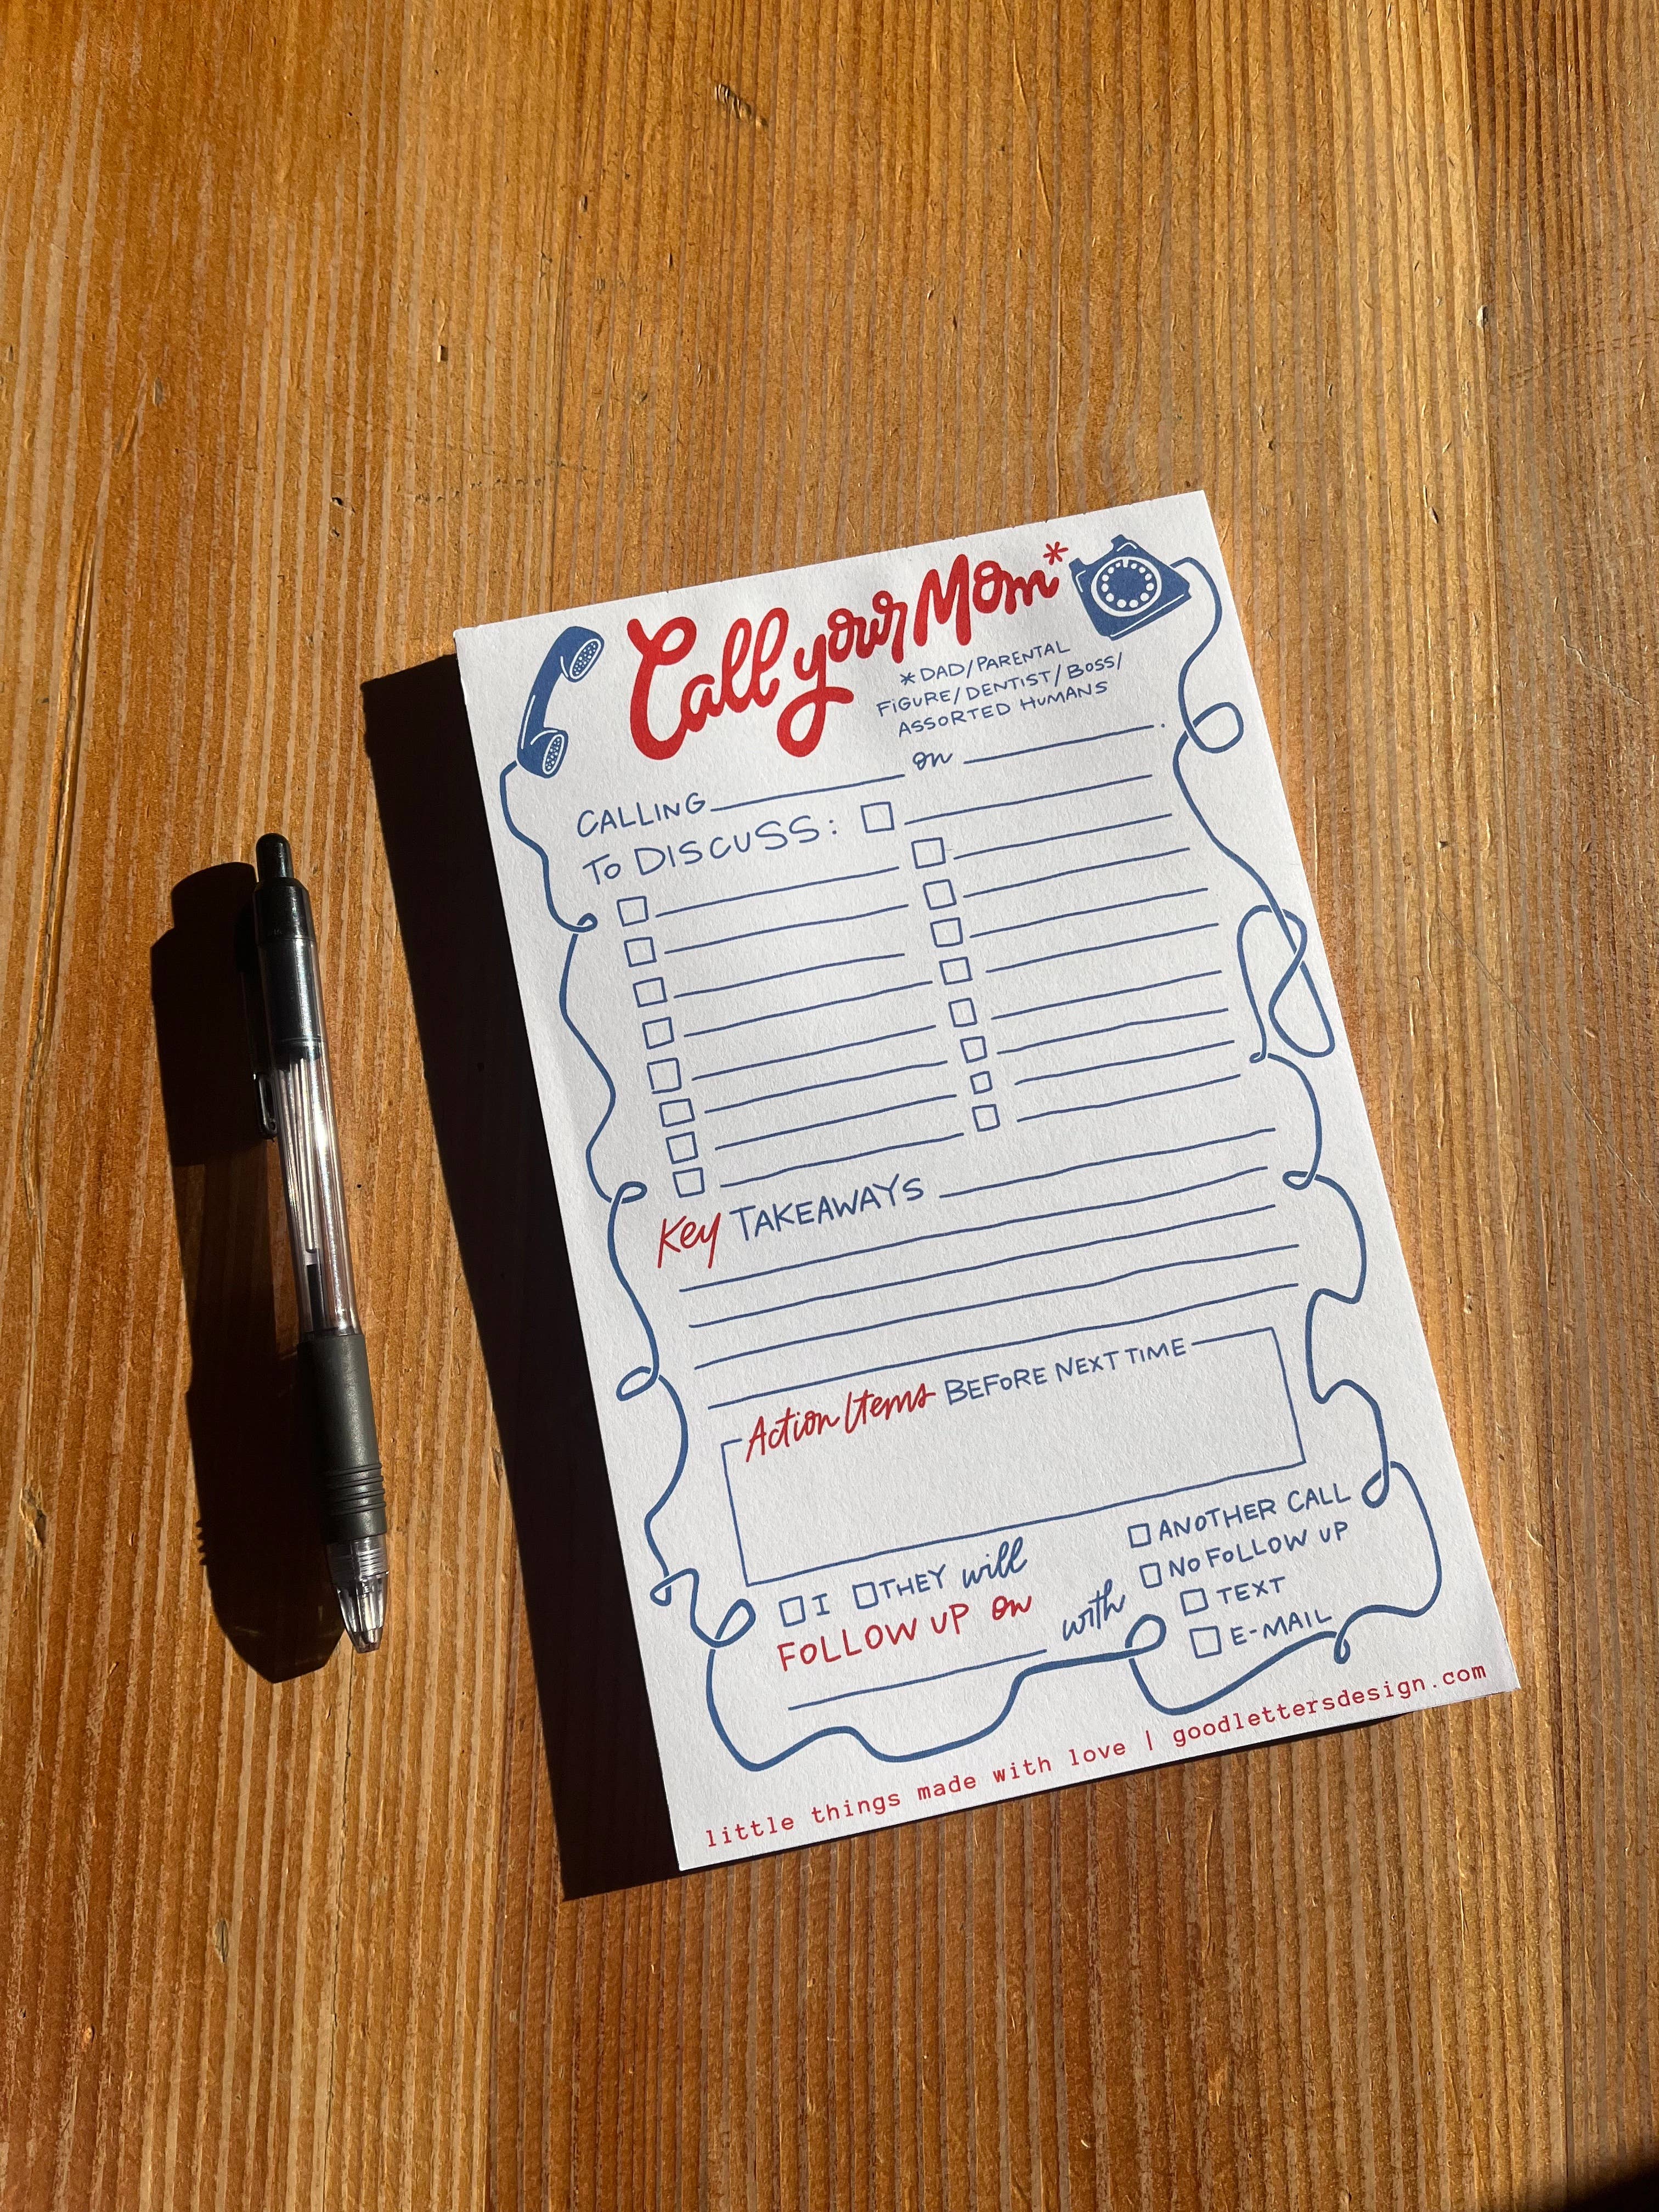 Call your Mom*
*DAD/PARENTAL
FIGURE/DENTIST/BOSS/
ASSORTED HUMANS
CALLING on .
TO DISCUSS:
Key TAKEAWAYS
Action Items BEFORE NEXT TIME
I THEY will
FOLLOW UP on
with
ANOTHER CALL
NO FOLLOW UP
TEXT
E-MAIL
little things made with love | goodlettersdesign.com